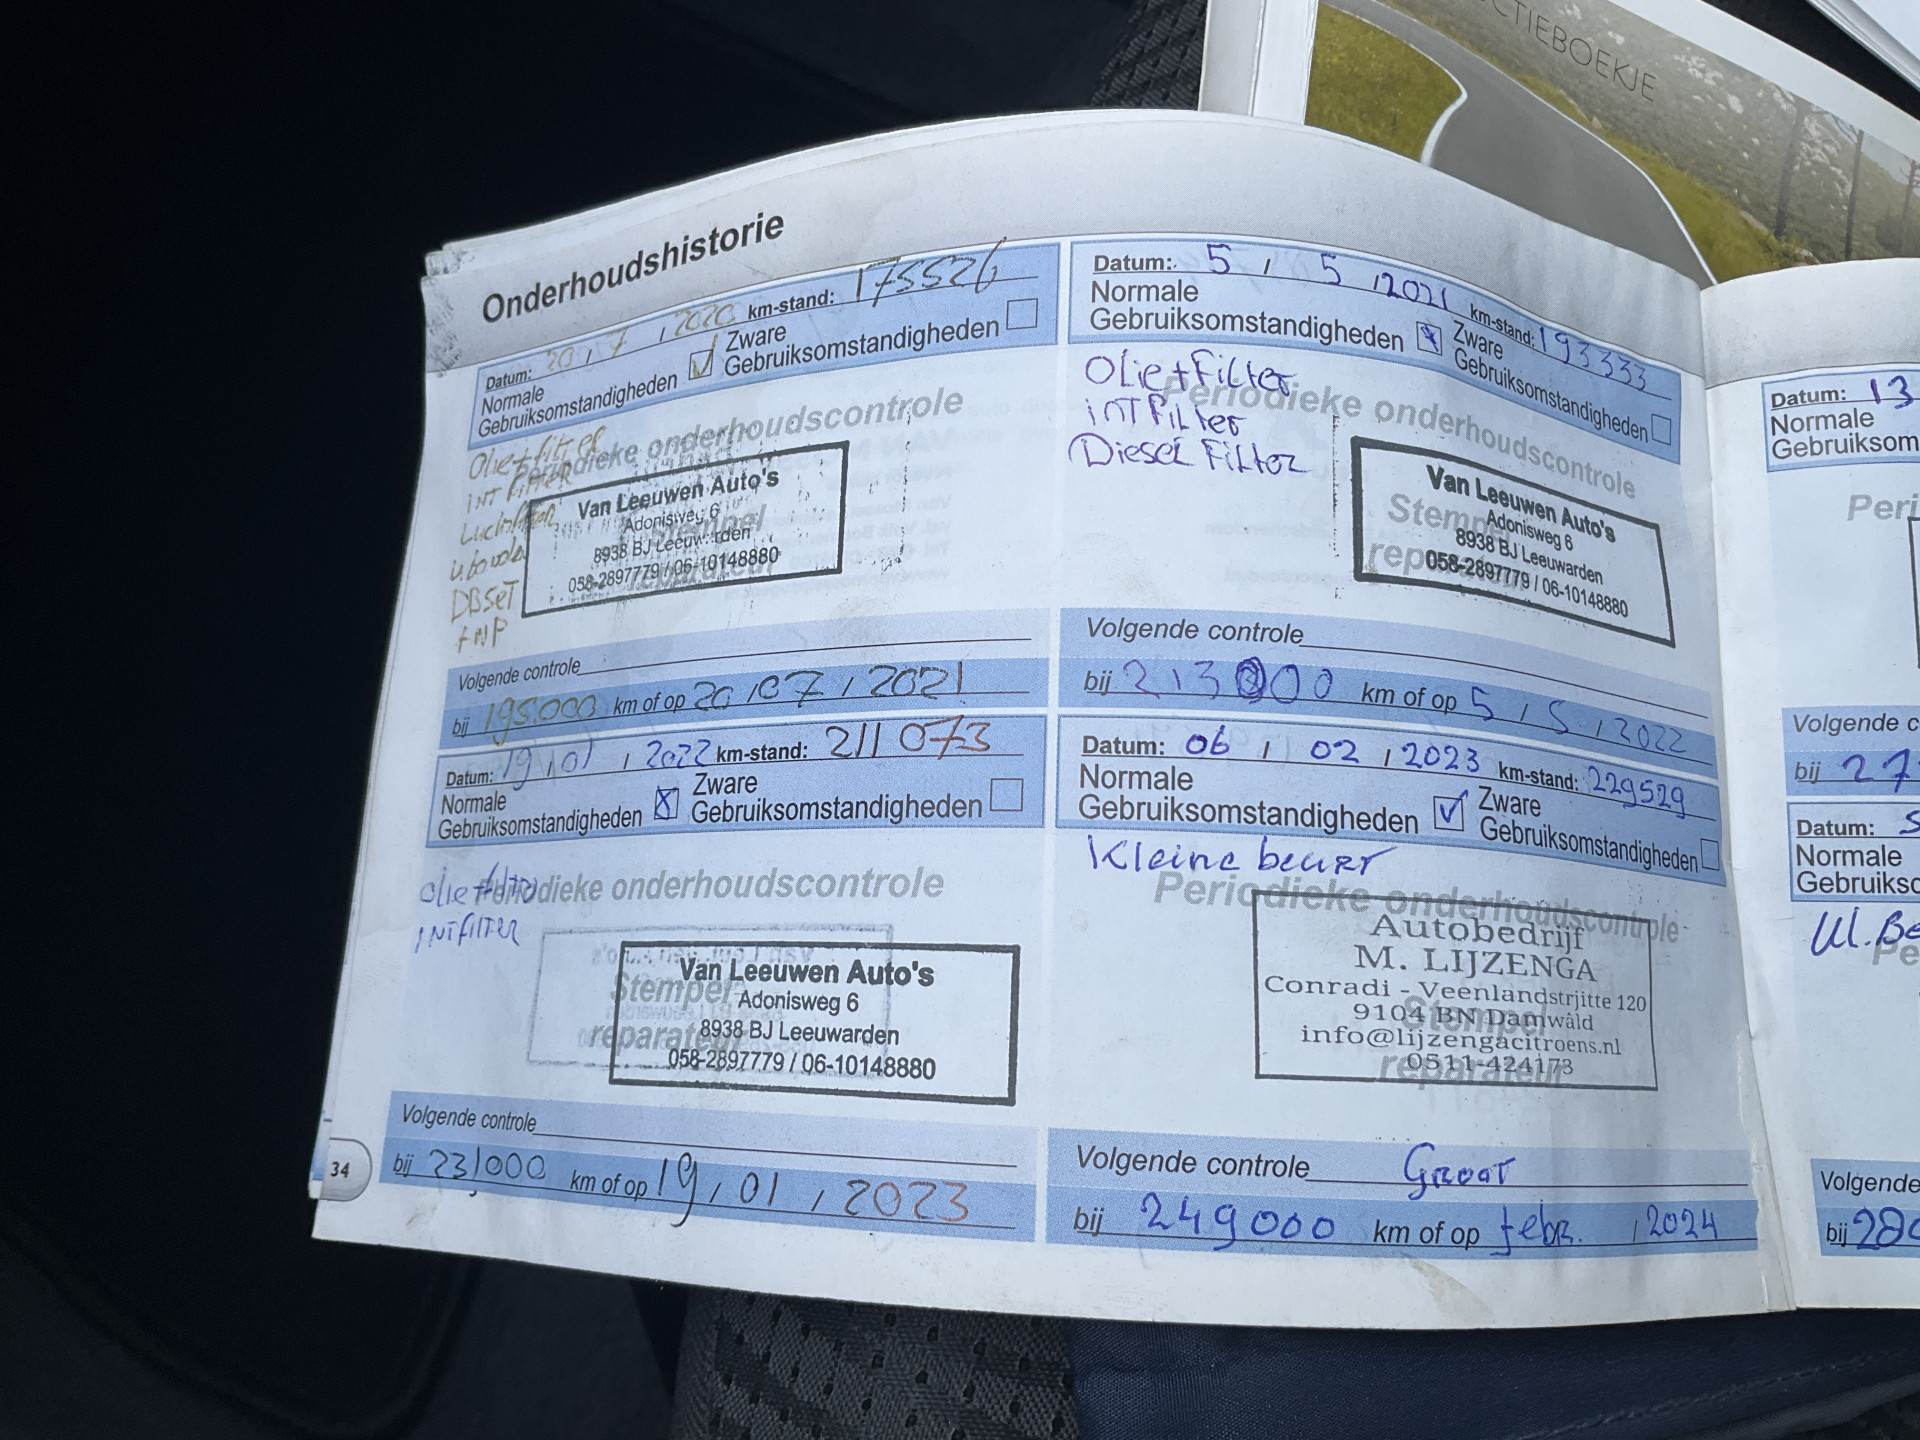 CTIEBOEKJE
Onderhoudshistorie
Datum: 20 / 7 / 2020 km-stand: 175526
Normale
Gebruiksomstandigheden
Zware
Gebruiksomstandigheden
Periodieke onderhoudscontrole
Olie+filter
INT FILTER
DBSET
+NP
Stempel
reparateur
Van Leeuwen Auto's
Adonisweg 6
8938 BJ Leeuwarden
058-2897779 / 06-10148880
Volgende controle
bij 195.000 km of op 20 / 07 / 2021
Datum: 5 / 5 / 2021 km-stand: 193333
Normale
Gebruiksomstandigheden
Zware
Gebruiksomstandigheden
Olie+Filter
inT Filter
Diesel Filter
Periodieke onderhoudscontrole
Stempel
reparateur
Van Leeuwen Auto's
Adonisweg 6
8938 BJ Leeuwarden
058-2897779 / 06-10148880
Volgende controle
bij 213000 km of op 5 / 5 / 2022
Datum: 19 / 01 / 2022 km-stand: 211073
Normale
Gebruiksomstandigheden
Zware
Gebruiksomstandigheden
Periodieke onderhoudscontrole
olie+filter
INTFILTER
Stempel
reparateur
Van Leeuwen Auto's
Adonisweg 6
8938 BJ Leeuwarden
058-2897779 / 06-10148880
Volgende controle
bij 231000 km of op 19 / 01 / 2023
34
Datum: 06 / 02 / 2023 km-stand: 229529
Normale
Gebruiksomstandigheden
Zware
Gebruiksomstandigheden
Kleine beurt
Periodieke onderhoudscontrole
Stempel
reparateur
Autobedrijf
M. LIJZENGA
Conradi - Veenlandstrjitte 120
9104 BN Damwâld
info@lijzengacitroens.nl
0511-424173
Volgende controle Groot
bij 249000 km of op febr. / 2024
Datum: 13
Normale
Gebruiksom
Peri
Volgende c
bij 27
Datum: 5
Normale
Gebruiksc
Kl. Be
Pe
Volgende
bij 280